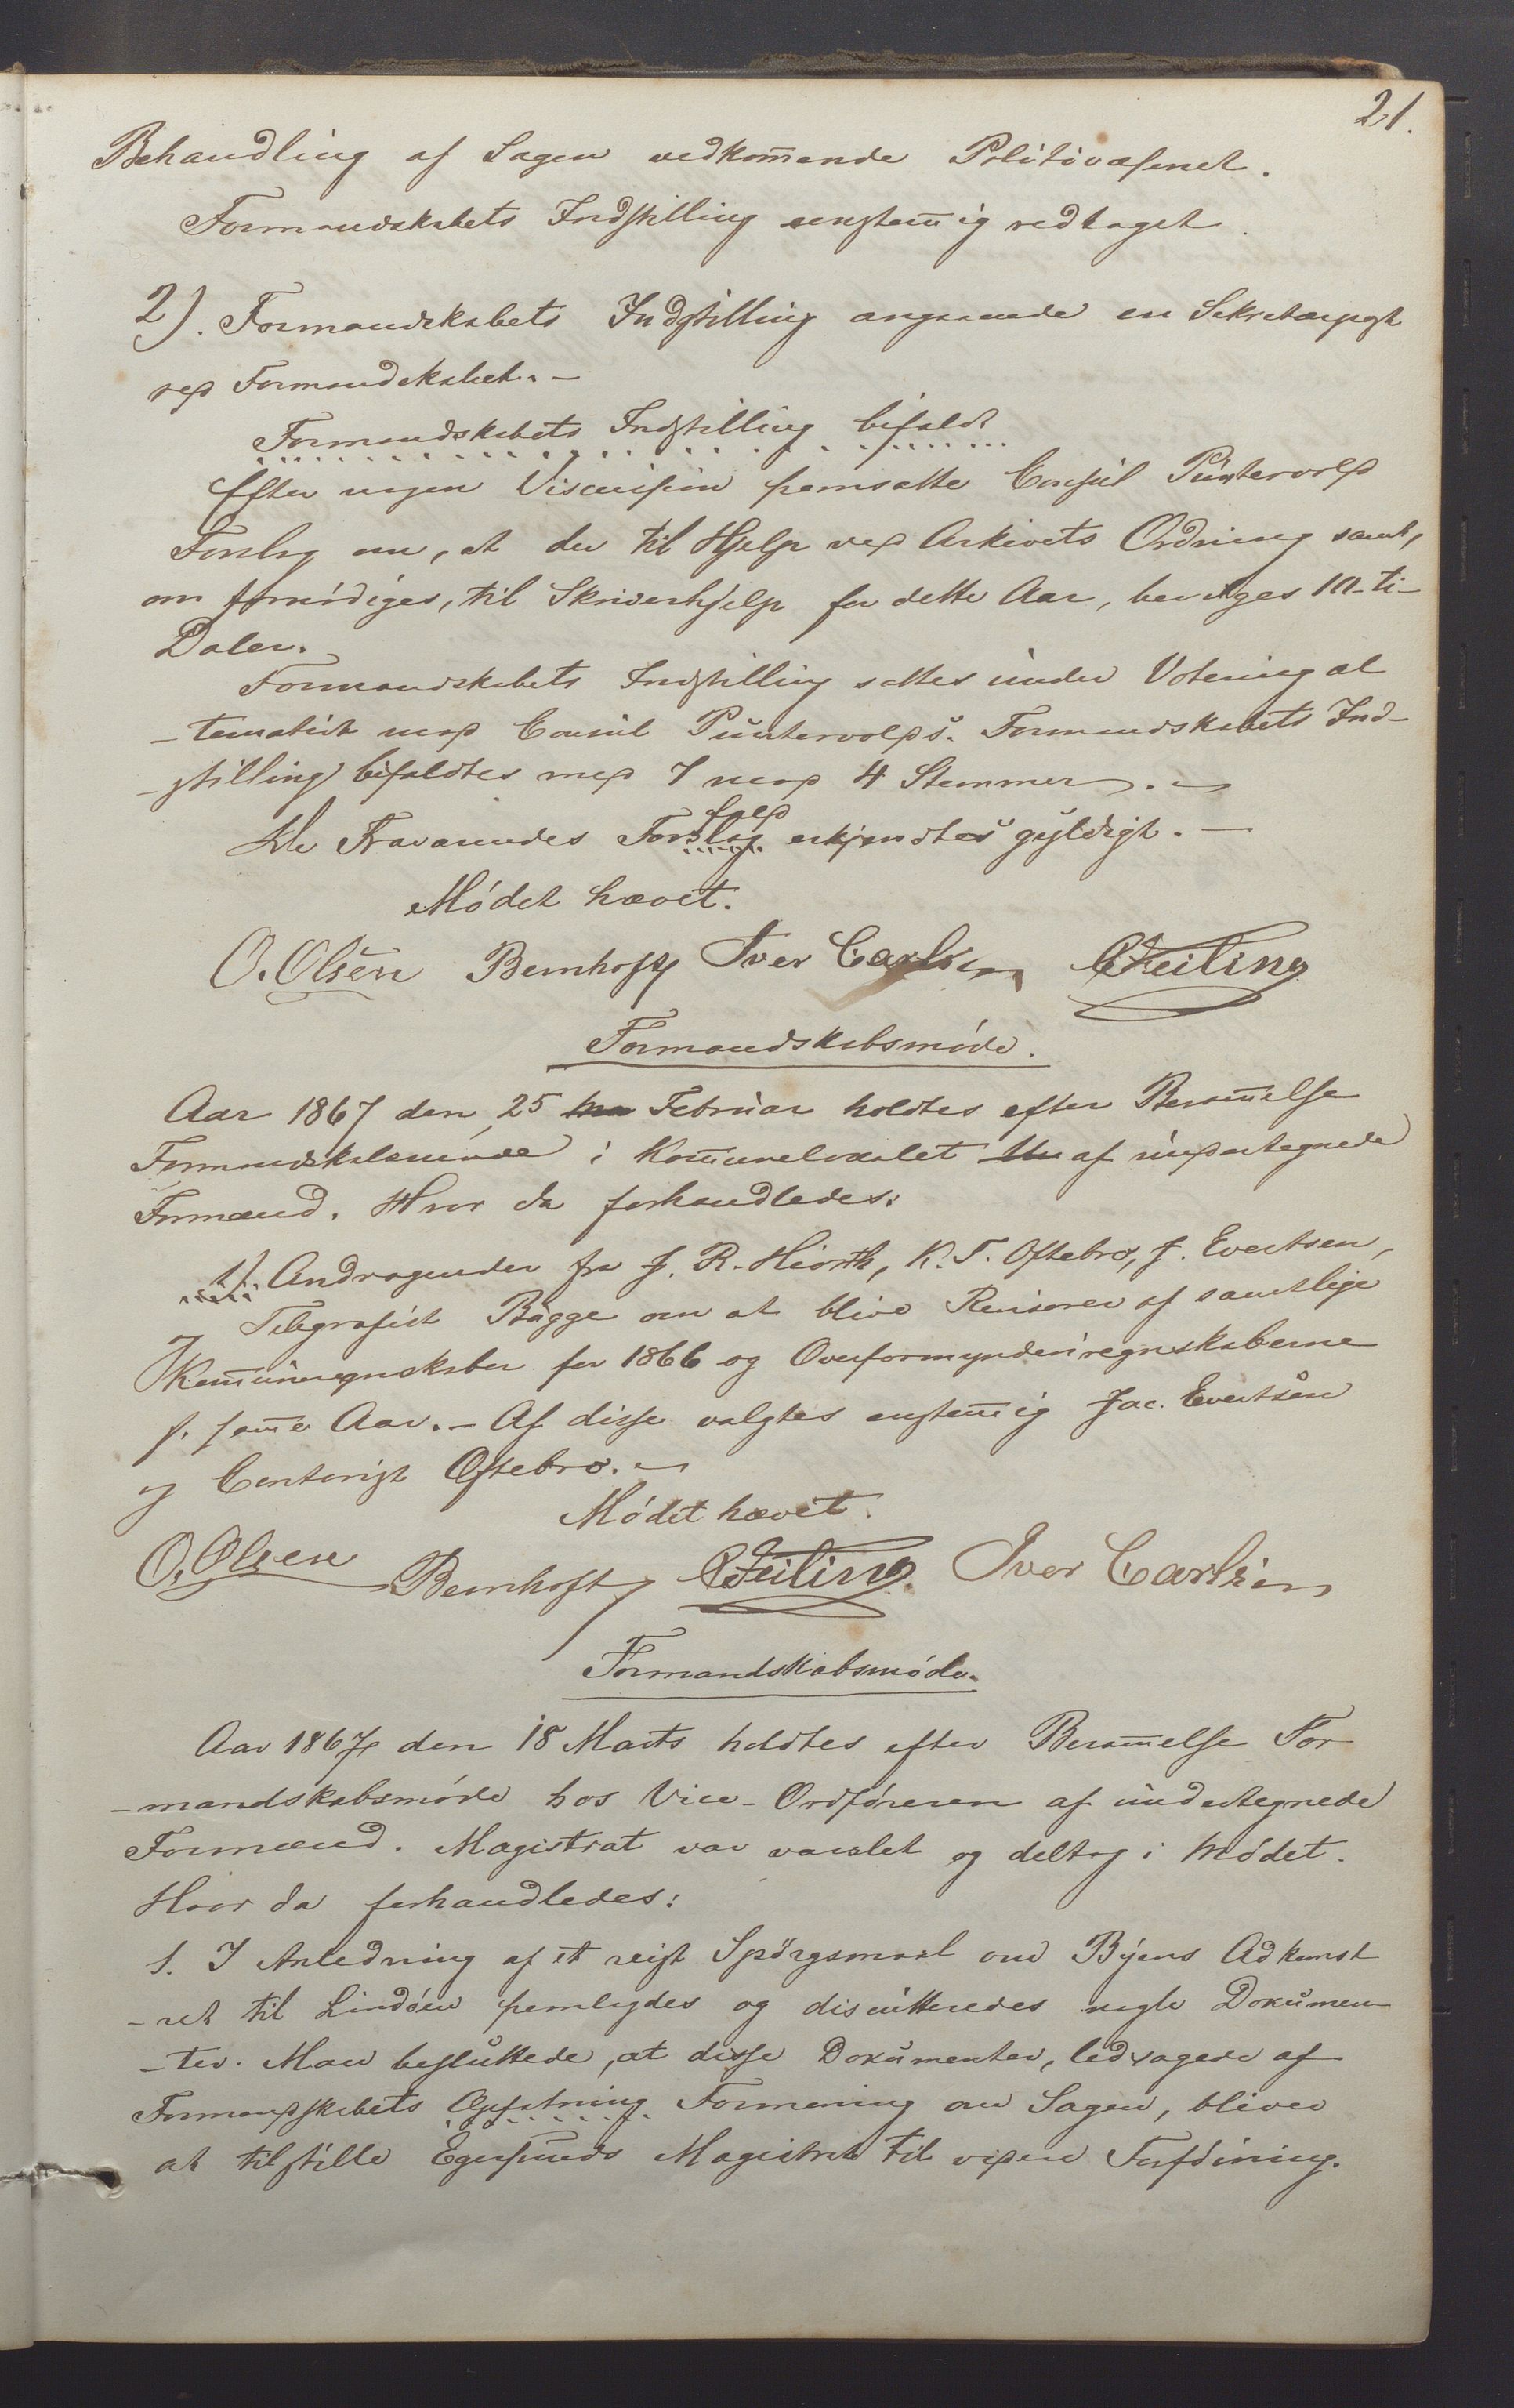 21.
Behandling af Sagen vedkom̄ende Politivæsenet.
Formandskabets Indstilling eenstem̄ig vedtaget.
2). Formandskabets Indstilling angaaende en Sekretærpost
ved Formandskabet. –
Formandskabets Indstilling bifaldt
Efter nogen Discusion fremsatte Consul Puntervold
Forslag om, at der til Hjelp ved Arkivets Ordning samt,
om fornødiges, til Skriverhjelp for dette Aar, beviges 10 - ti -
Daler.
Formandskabets Indstilling sattes under Votering al
- ternativt med Consul Puntervolds. Formandskabets Ind-
- stilling bifaldtes med 7 mod 4 Stemmer. –
De Fraværendes Forslag fald erkjendtes gyldigt. –
Mødet hævet.
O. Olsen Bernhoft Iver Carlsen CFeiling
Formandskabsmøde.
Aar 1867 den 25 Februar holdtes efter Beram̄else
Formandskabsmøde i Kom̄unelocalet af undertegnede
Formænd. Hvor da forhandledes:
1). Andragender fra J. R. Hiorth, K. T. Oftebro, J. Evertsen,
og Telegrafist Bagge om at blive Revisorer af samtlige
Kom̄uneregnskaber for 1866 og Overformynderiregnskaberne
f. sam̄e Aar. – Af disse valgtes enstem̄ig Jac. Evertsen
og Contorist Oftebro. –
Mødet hævet.
O. Olsen Bernhoft CFeiling. Iver Carlsen
Formandskabsmøde.
Aar 1867 den 18 Marts holdtes efter Beram̄else For
- mandskabsmøde hos Vice-Ordføreren af undertegnede
Formænd. Magistrat var varslet og deltog i Mødet.
Hvor da forhandledes:
1. I Anledning af et reist Spørgsmaal om Byens Adkomst
- ret til Lindøen fremlagdes og discutteredes nogle Dokumen
- ter. Man besluttede, at disse Dokumenter, ledsagede af
Formandskabets Opfatning Formening om Sagen, bliver
at tilstille Egersunds Magistrat til videre Forføining.